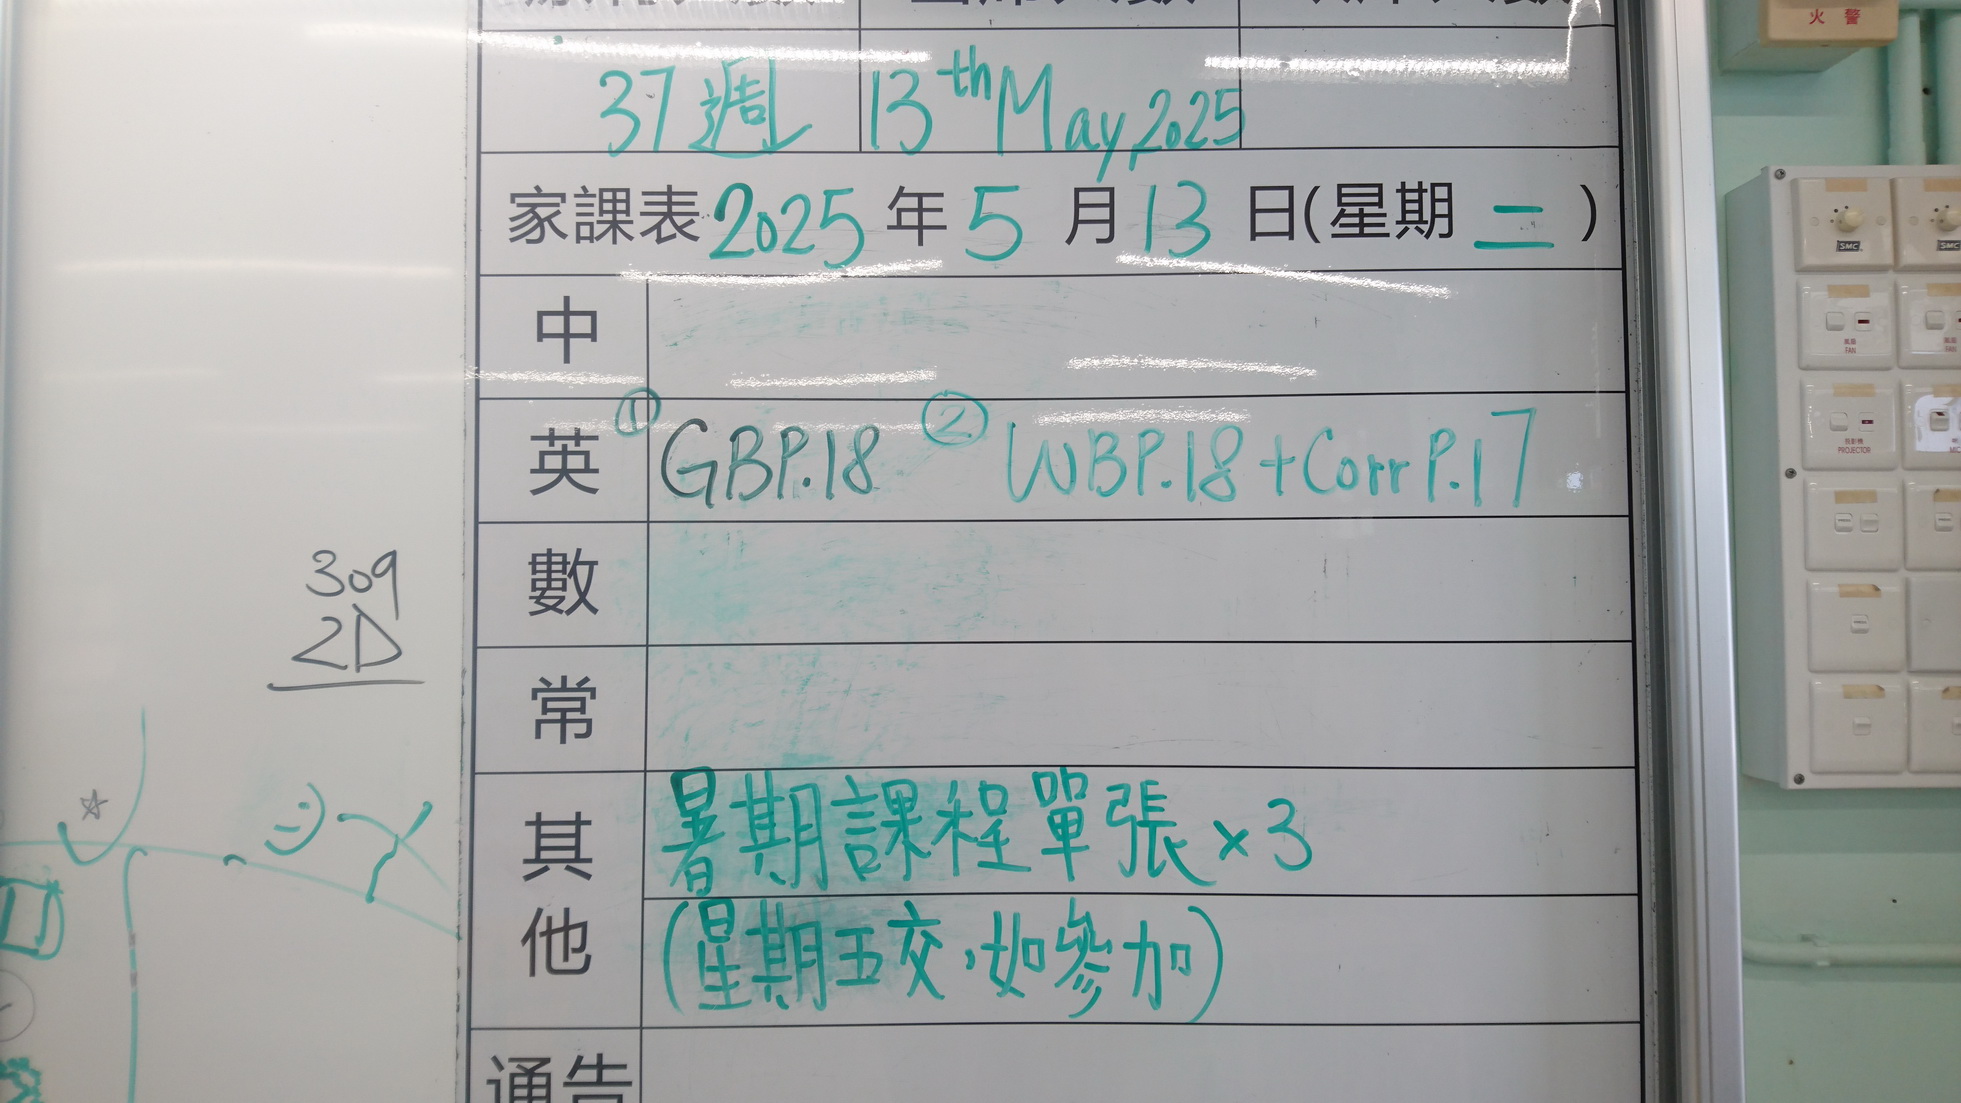 37週 13th May, 2025
家課表 2025 年 5 月 13 日(星期 二 )
中
英 ① GBP.18 ② WBP.18 + Corr P.17
數
常
其他
暑期課程單張 × 3
(星期五交,如參加)
通告
309
2D
火 警
SMC
SMC
風扇
FAN
FAN
投影機
PROJECTOR